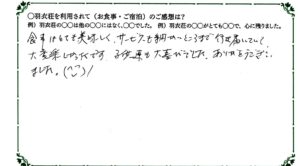 ○羽衣荘を利用されて（お食事・ご宿泊）のご感想は？
例）羽衣荘の○○は他の○○にはなく、○○でした。 例）羽衣荘の○○がとても○○で、心に残りました。
食事はとても美味しく、サービスも細かいところまで行き届いていて
大変楽しかったです。子供達も大喜びでした。ありがとうござい
ました。(^○^)/